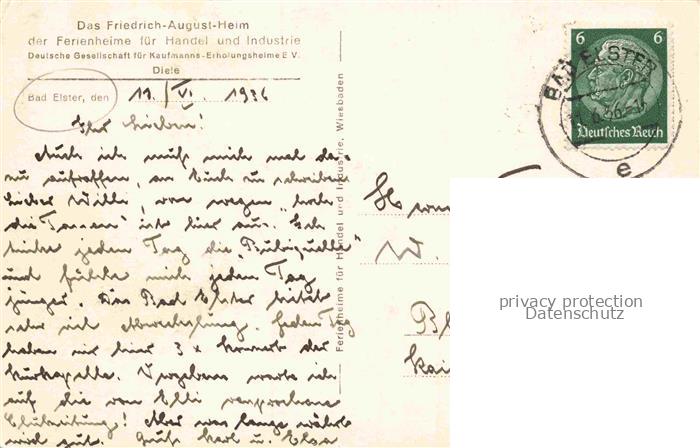 Das Friedrich-August-Heim
der Ferienheime für Handel und Industrie
Deutsche Gesellschaft für Kaufmanns-Erholungsheime E.V.
Diele
Bad Elster, den 11./VI. 1936
Ihr Lieben!
Auch ich muß mich mal da-
zu aufraffen, an Euch zu schreiben.
Lieber Willi, von wegen "hoch
die Tassen" ist hier aus. Ich
trinke jeden Tag die
und fühle mich jeden Tag
jünger. Das Bad Elster bietet
sehr viel Abwechslung. Jeden Tag
haben wir hier 3 x Konzert der
Kurkapelle. Vergebens warte ich
auf die von Elli versprochene
! Aber was lange währt
wird gut. Gruß Karl u. Elsa
Ferienheime für Handel und Industrie, Wiesbaden
6 6
Deutsches Reich
BAD ELSTER
e
W.
Bl
Kai
privacy protection
Datenschutz